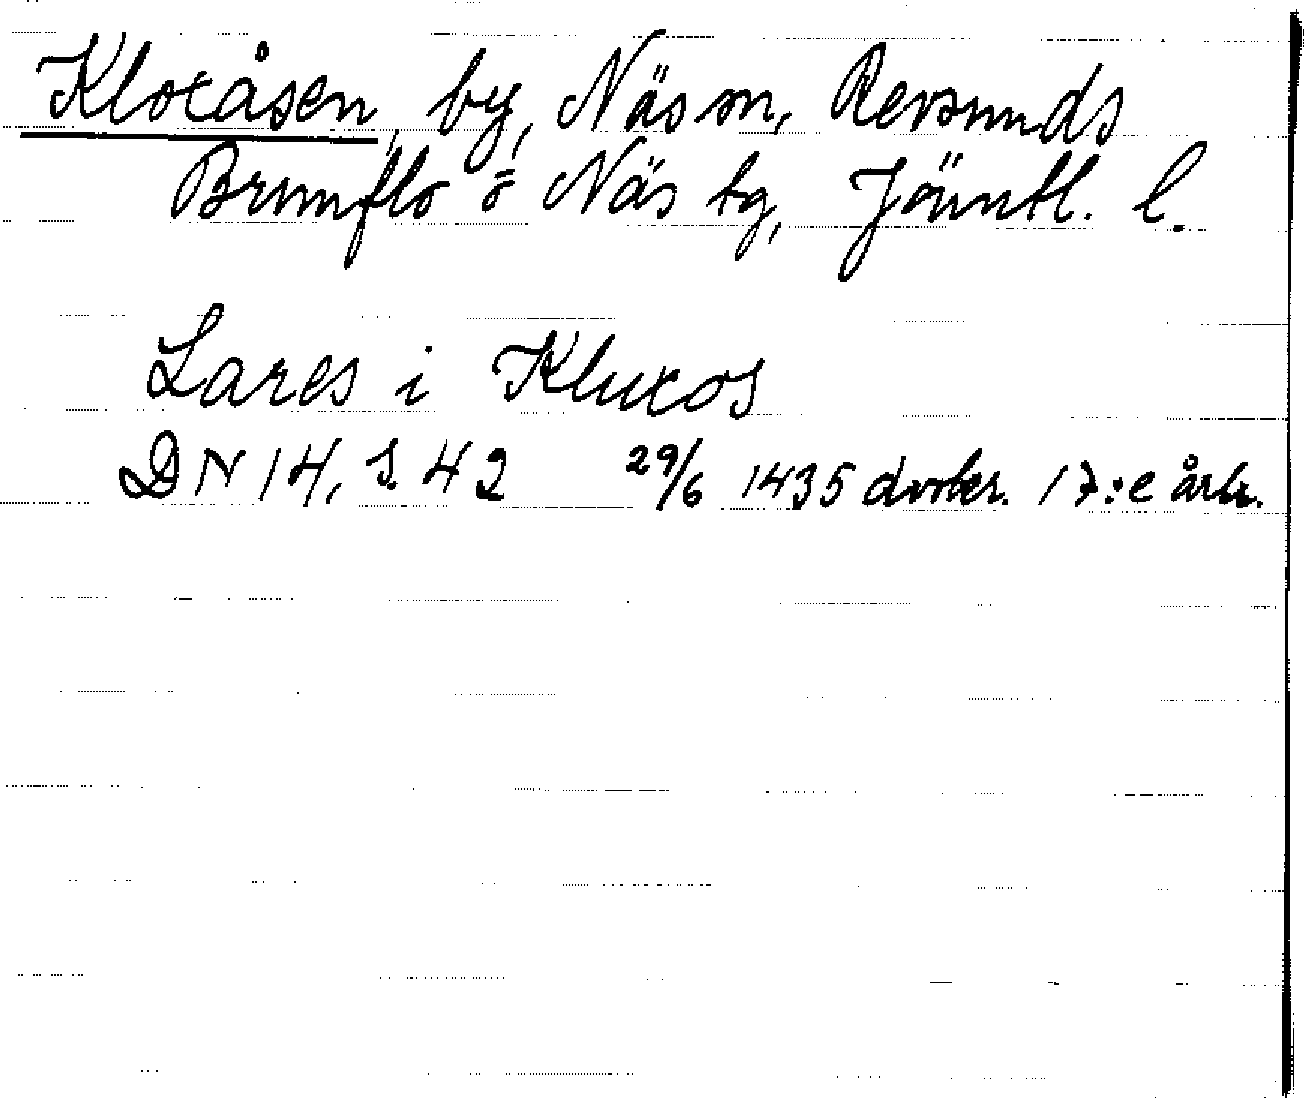 Kloxåsen, by, Näs sn, Revsunds
Brunflo o Näs tg, Jämtl. l.
Lares i Kluxos
DN 14, s. 42 29/6 1435 avskr. 17:e årh.